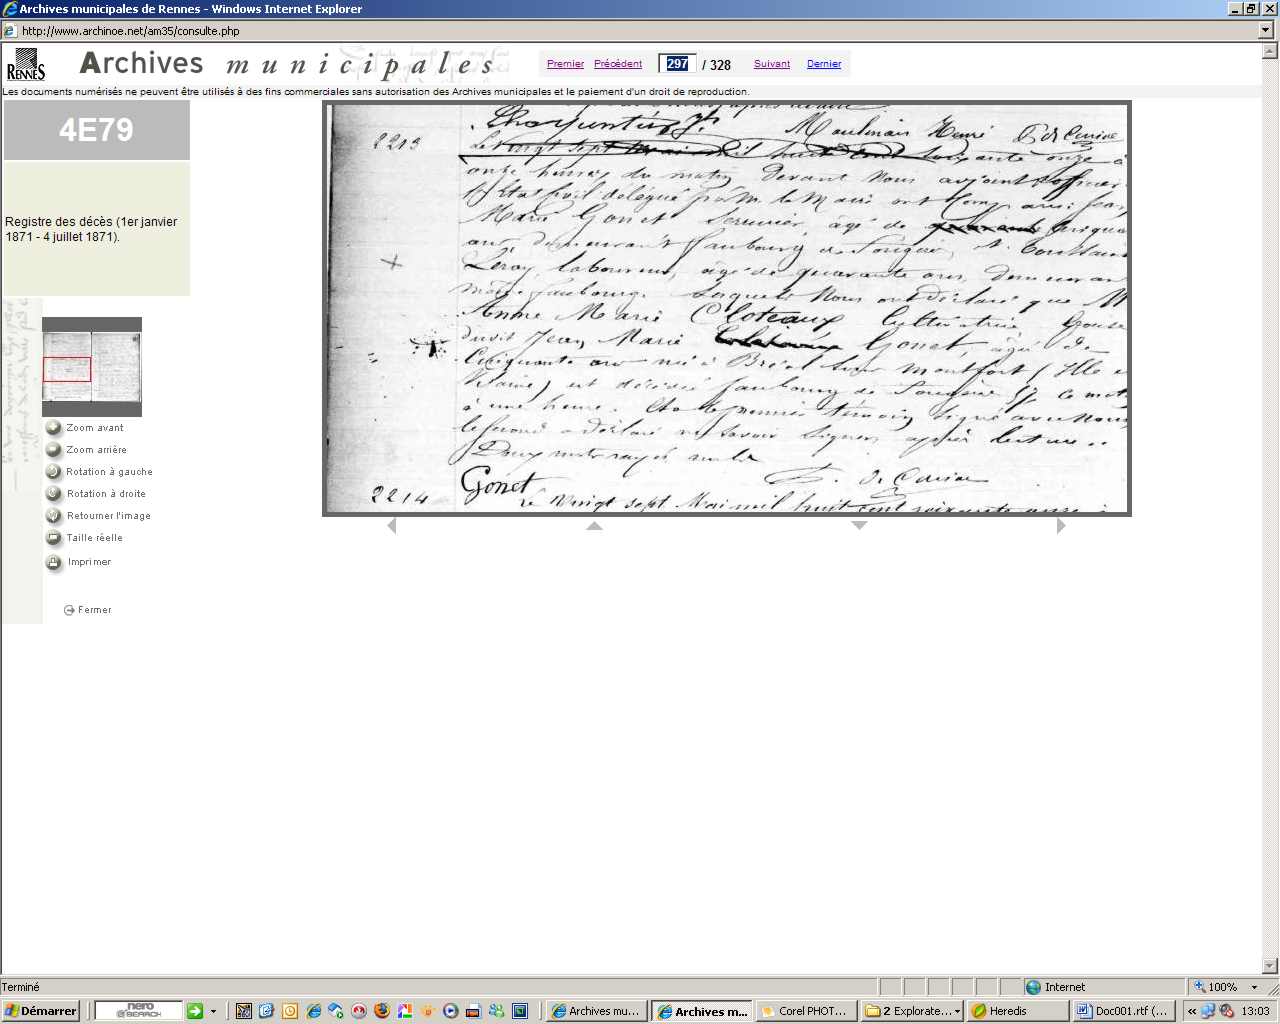 Archives municipales de Rennes - Windows Internet Explorer
http://www.archinoe.net/am35/consulte.php
RENNES
Archives municipales
Premier Précédent 297 / 328 Suivant Dernier
Les documents numérisés ne peuvent être utilisés à des fins commerciales sans autorisation des Archives municipales et le paiement d'un droit de reproduction.
4E79
Registre des décès (1er janvier
1871 - 4 juillet 1871).
Zoom avant
Zoom arrière
Rotation à gauche
Rotation à droite
Retourner l'image
Taille réelle
Imprimer
Fermer
Charpentier
2213
Le vingt sept mai mil huit cent soixante onze à
onze heures du matin, devant nous adjoint officier
Etat Civil délégué par M. le Maire ont comparu: Jean
Marie Gonet Serrurier, âgé de cinquante
ans, demeurant faubourg de Fougères, et Toussaint
Leray, laboureur, âgé de quarante ans, demeurant
même faubourg. Lesquels nous ont déclaré que
Anne Marie Cloteaux Cultivatrice Epouse
dudit Jean Marie Gonet, âgée de
Cinquante née à Bréal sous Montfort (Ille et
Vilaine) est décédée faubourg de Fougères ce matin
à une heure. Et le premier témoin signé avec nous,
le second a déclaré ne savoir signer, après lecture.
Deux mots rayés nuls
Gonet
2214
Le vingt sept Mai mil huit cent soixante onze à
Terminé
Internet
100%
Démarrer
nero
SEARCH
Archives mu...
Archives m...
Corel PHOT...
2 Explorate...
Heredis
Doc001.rtf (...
13:03